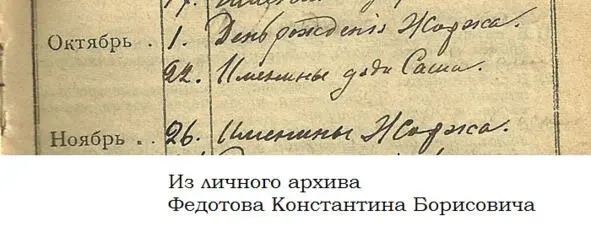 17.
Октябрь . 1. День рожденія Жоржа.
22. Именины дяди Саши.
Ноябрь . . 26. Именины Жоржа.
Из личного архива
Федотова Константина Борисовича